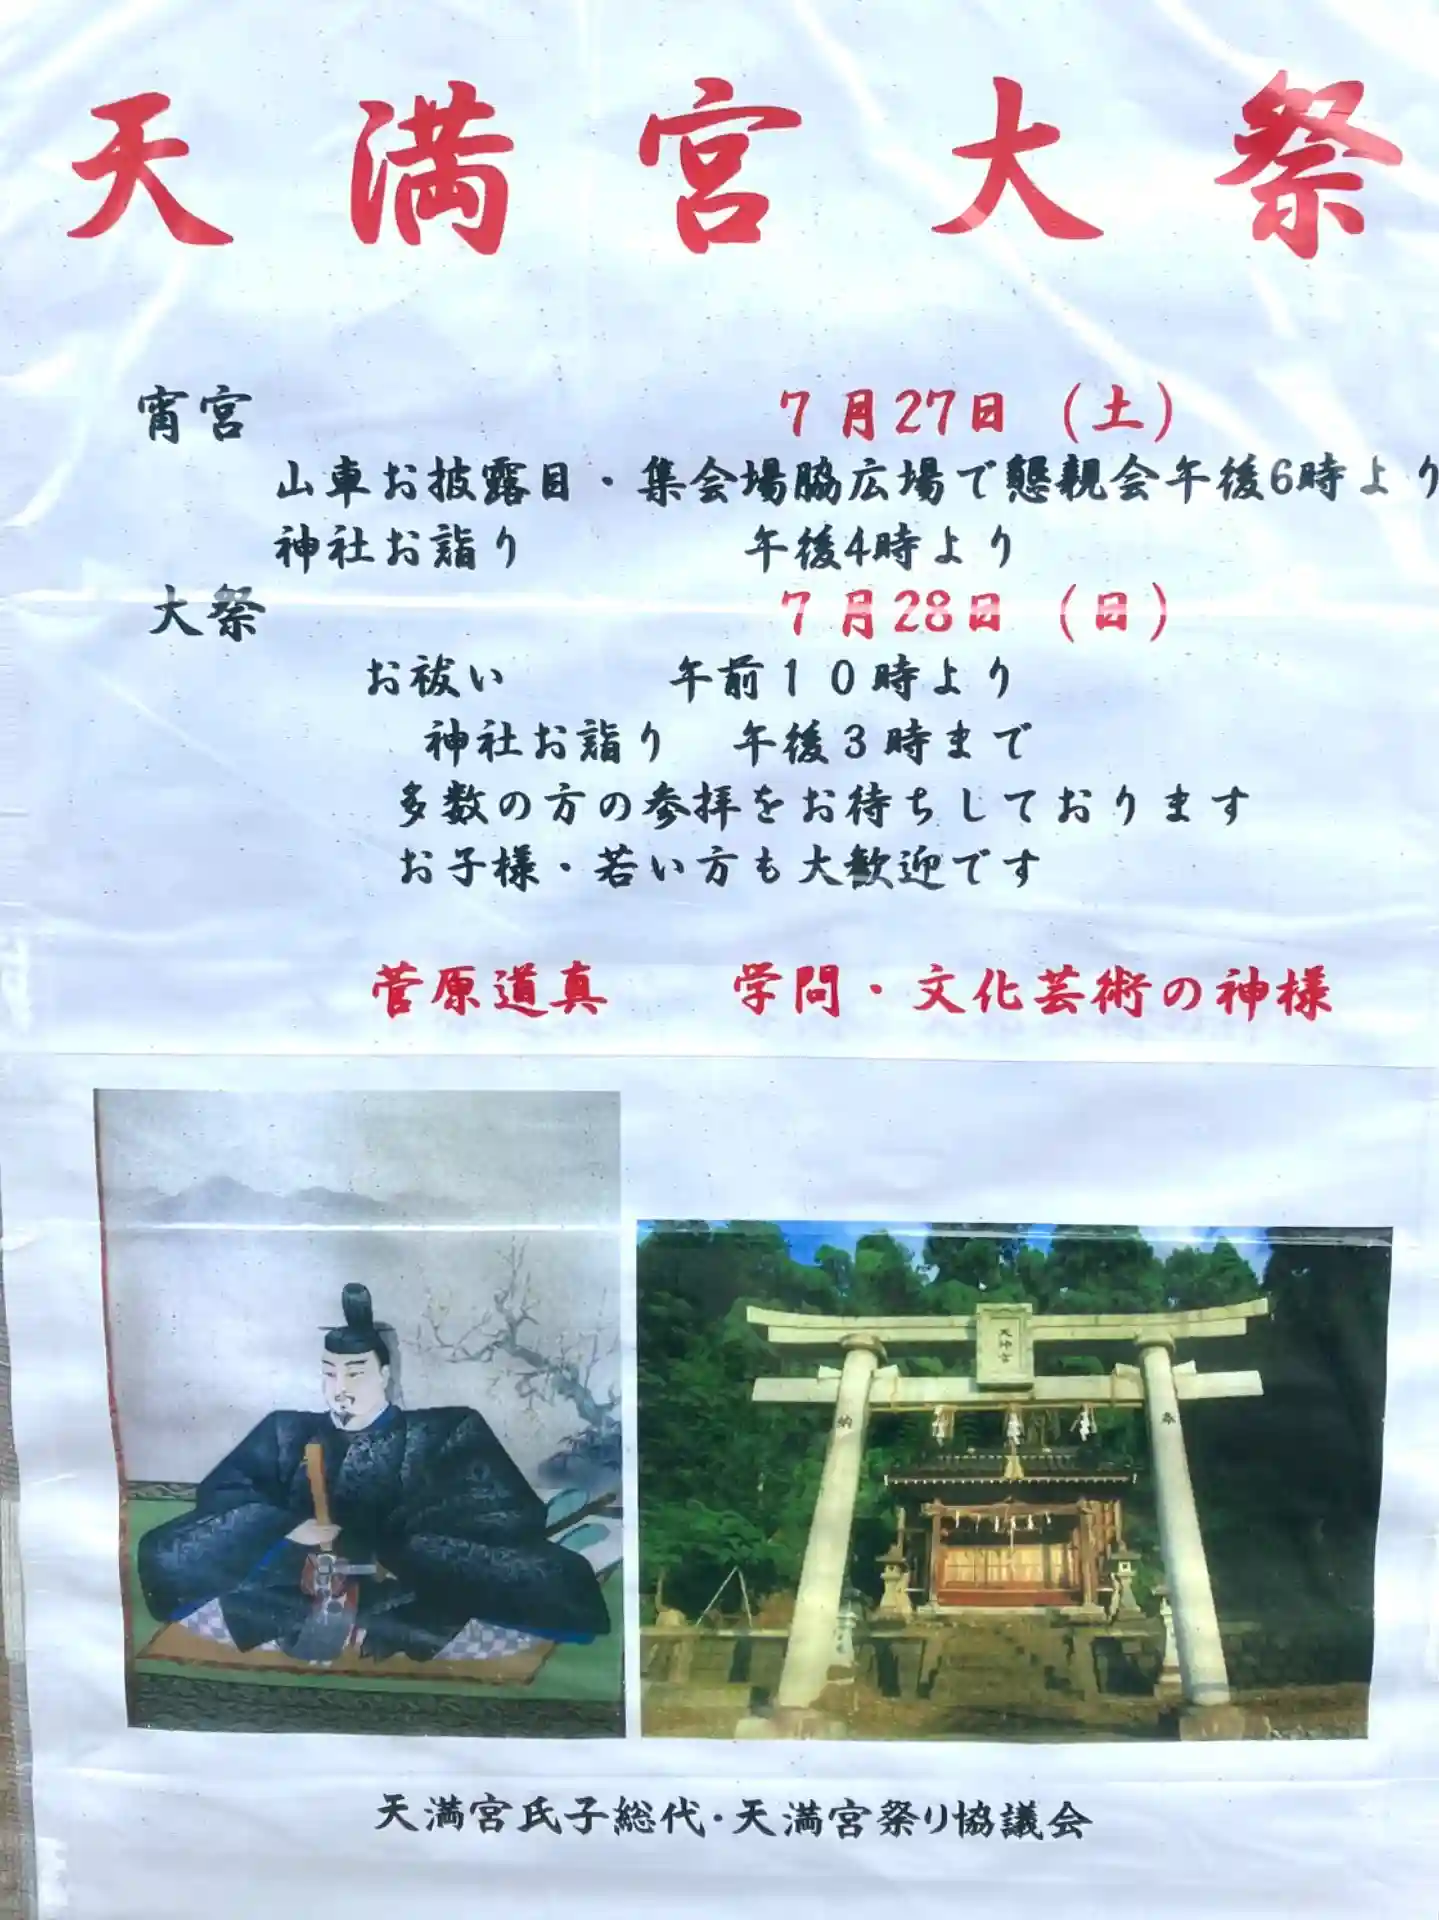 天満宮大祭
宵宮 7月27日 (土)
山車お披露目・集会場脇広場で懇親会午後6時より
神社お詣り 午後4時より
大祭 7月28日 (日)
お祓い 午前10時より
神社お詣り 午後3時まで
多数の方の参拝をお待ちしております
お子様・若い方も大歓迎です
菅原道真 学問・文化芸術の神様
天神宮
納
奉
天満宮氏子総代・天満宮祭り協議会